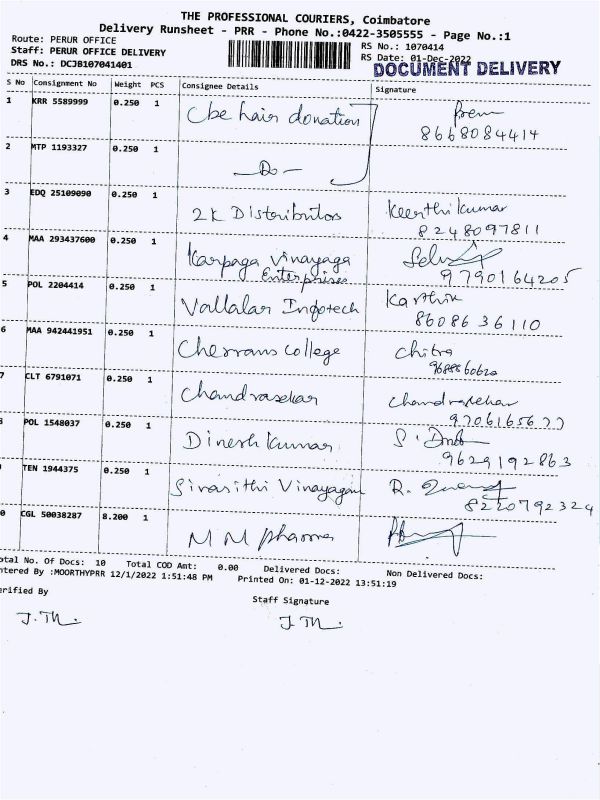 THE PROFESSIONAL COURIERS, Coimbatore
Delivery Runsheet - PRR - Phone No.:0422-3505555 - Page No.:1
Route: PERUR OFFICE
RS No.: 1070414
Staff: PERUR OFFICE DELIVERY
RS Date: 01-Dec-2022
DRS No.: DCJB107041401
DOCUMENT DELIVERY
S No Consignment No Weight PCS Consignee Details Signature
1 KRR 5589999 0.250 1 Cbe hair donation Prem
8668084414
2 MTP 1193327 0.250 1
-Do-
3 EDQ 25109090 0.250 1
2K Distributors Keerthi kumar
8248097811
4 MAA 293437600 0.250 1 Karpaga Vinayaga
Enterprises 9790164205
5 POL 2204414 0.250 1 Vallalar Infotech Karthik
8608636110
6 MAA 942441951 0.250 1
Cherrans college Chitra
7 CLT 6791071 0.250 1
Chandrasekar Chandrasekar
POL 1548037 0.250 1
Dinesh kumar
9629192863
TEN 1944375 0.250 1 Vinayagam R.
8220792324
0 CGL 50038287 8.200 1
M M pharma
otal No. Of Docs: 10 Total COD Amt: 0.00 Delivered Docs: Non Delivered Docs:
ntered By :MOORTHYPRR 12/1/2022 1:51:48 PM Printed On: 01-12-2022 13:51:19
erified By
Staff Signature
J. Th.
J. Th.